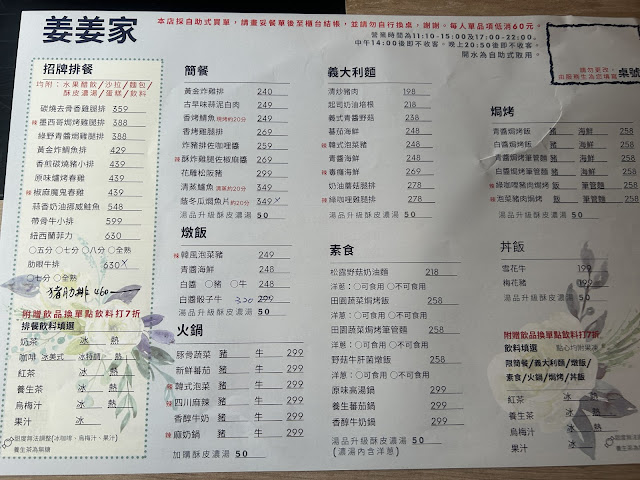 姜姜家
本店採自助式買單，請畫妥餐單後至櫃台結帳，並請勿自行換桌，謝謝。每人單品項低消60元。
營業時間為11:10-15:00及17:00-22:00。
中午14:00後即不收客。晚上20:50後即不收客。
開水為自助式取用。
桌號
招牌排餐
均附：水果醋飲/沙拉/麵包/
酥皮濃湯/蛋糕/飲料
碳燒去骨香雞腿排 359
辣墨西哥焗烤雞腿排 388
綠野青醬雞腿排 388
黃金炸鯛魚排 429
香煎碳燒豬小排 439
原味爐烤春雞 439
辣椒麻魔鬼春雞 439
蒜香奶油挪威鮭魚 548
帶骨牛小排 599
紐西蘭菲力 630
○五分 ○七分 ○八分 ○全熟
肋眼牛排 630 X
○七分 ○全熟
豬肋排 460
附贈飲品換單點飲料打7折
排餐飲料填選
奶茶 冰 熱
咖啡 冰美式 冰特調 熱
紅茶 冰 熱
養生茶 冰 熱
烏梅汁 冰 熱
果汁 冰
甜度無法調整(冰咖啡、烏梅汁、果汁)
養生茶為無糖
簡餐
黃金炸雞排 240
古早味蒜泥白肉 249
香烤鯖魚 燒烤約20分 249
香烤雞腿排 269
炸豬排佐咖哩醬 259
辣酥炸雞腿佐椒麻醬 269
花雕松阪豬 299
清蒸鱸魚 清蒸約20分 349
蔭冬瓜燜魚片約20分 349 X
湯品升級酥皮濃湯 50
燉飯
辣韓風泡菜豬 249
青醬海鮮 248
白醬 ○豬 ○牛 248
白醬骰子牛 320 299
火鍋
豚骨蔬菜 豬 牛 299
新鮮蕃茄 豬 牛 299
辣韓式泡菜 豬 牛 299
辣四川麻辣 豬 牛 299
香醇牛奶 豬 牛 299
辣麻奶鍋 豬 牛 299
加購酥皮濃湯 50
義大利麵
清炒豬肉 198
起司奶油培根 218
義式青醬野菇 238
蕃茄海鮮 248
辣韓式泡菜豬 248
青醬海鮮 248
辣毒癮海鮮 269
奶油蘑菇腿排 278
辣綠咖哩雞腿排 278
湯品升級酥皮濃湯 50
素食
松露野菇奶油麵 258
洋蔥：○可食用 ○不可食用
田園蔬菜焗烤飯 258
洋蔥：○可食用 ○不可食用
田園蔬菜焗烤筆管麵 258
洋蔥：○可食用 ○不可食用
野菇牛肝菌燉飯 258
洋蔥：○可食用 ○不可食用
原味高湯鍋 299
養生蕃茄鍋 299
香醇牛奶鍋 299
湯品升級酥皮濃湯 50
(濃湯內含洋蔥)
焗烤
青醬焗烤飯 豬 海鮮 258
白醬焗烤飯 豬 海鮮 258
青醬焗烤筆管麵 豬 海鮮 258
白醬焗烤筆管麵 豬 海鮮 258
辣綠咖哩豬肉焗烤 飯 筆管麵 258
辣泡菜豬肉焗烤 飯 筆管麵 258
湯品升級酥皮濃湯 50
丼飯
雪花牛 199
梅花豬 199
湯品升級酥皮濃湯 50
附贈飲品換單點飲料打7折
飲料填選
限簡餐/義大利麵/燉飯/
素食/火鍋/焗烤/丼飯
紅茶 冰 熱
養生茶 冰 熱
烏梅汁 冰 熱
果汁 冰